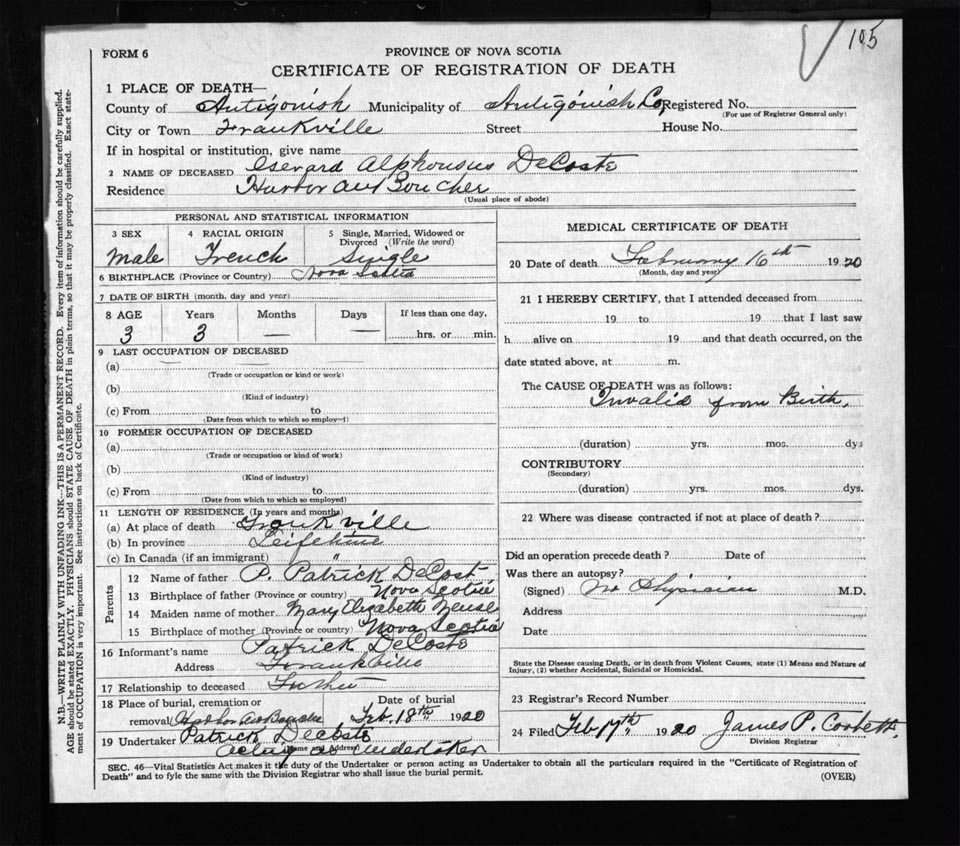 105
FORM 6
PROVINCE OF NOVA SCOTIA
CERTIFICATE OF REGISTRATION OF DEATH
1 PLACE OF DEATH—
County of Antigonish Municipality of Antigonish Co, Registered No.
(For use of Registrar General only)
City or Town Frankville Street House No.
If in hospital or institution, give name
2 NAME OF DECEASED Gerard Alphonsus DeCoste
Residence Harbor au Boucher
(Usual place of abode)
PERSONAL AND STATISTICAL INFORMATION
3 SEX 4 RACIAL ORIGIN 5 Single, Married, Widowed or
Divorced (Write the word)
Male French Single
6 BIRTHPLACE (Province or Country) Nova Scotia
7 DATE OF BIRTH (month, day and year)
8 AGE Years Months Days If less than one day,
3 3 — — hrs. or min.
9 LAST OCCUPATION OF DECEASED
(a)
(Trade or occupation or kind or work)
(b)
(Kind of industry)
(c) From to
(Date from which to which so employ—)
10 FORMER OCCUPATION OF DECEASED
(a)
(Trade or occupation or kind of work)
(b)
(Kind of industry)
(c) From to
(Date from which to which so employed)
11 LENGTH OF RESIDENCE (In years and months)
(a) At place of death Frankville
(b) In province Lifetime
(c) In Canada (if an immigrant) "
Parents
12 Name of father P. Patrick DeCost
13 Birthplace of father (Province or country) Nova Scotia
14 Maiden name of mother Mary Elizabeth
15 Birthplace of mother (Province or country) Nova Scotia
16 Informant's name Patrick DeCoste
Address Frankville
17 Relationship to deceased Father
18 Place of burial, cremation or Date of burial
removal Harbor au Boucher Feb. 18th, 1920
19 Undertaker Patrick Decoste
(name and address)
acting as undertaker
MEDICAL CERTIFICATE OF DEATH
20 Date of death February 16th 1920
(Month, day and year)
21 I HEREBY CERTIFY, that I attended deceased from
19 to 19 that I last saw
h alive on 19 and that death occurred, on the
date stated above, at m.
The CAUSE OF DEATH was as follows:
Invalid from Birth,
(duration) yrs. mos. dys
CONTRIBUTORY
(Secondary)
(duration) yrs. mos. dys.
22 Where was disease contracted if not at place of death?
Did an operation precede death? Date of
Was there an autopsy?
(Signed) No Physician M.D.
Address
Date
State the Disease causing Death, or in death from Violent Causes, state (1) Means and Nature of
Injury, (2) whether Accidental, Suicidal or Homicidal.
23 Registrar's Record Number
24 Filed Feb 17th, 1920 James P. Corbett
Division Registrar
SEC. 46—Vital Statistics Act makes it the duty of the Undertaker or person acting as Undertaker to obtain all the particulars required in the "Certificate of Registration of
Death" and to fyle the same with the Division Registrar who shall issue the burial permit.
(OVER)
N.B.—WRITE PLAINLY WITH UNFADING INK—THIS IS A PERMANENT RECORD. Every item of information should be carefully supplied.
AGE should be stated EXACTLY. PHYSICIANS should STATE CAUSE OF DEATH in plain terms, so that it may be properly classified. Exact state-
ment of OCCUPATION is very important. See instructions on back of Certificate.